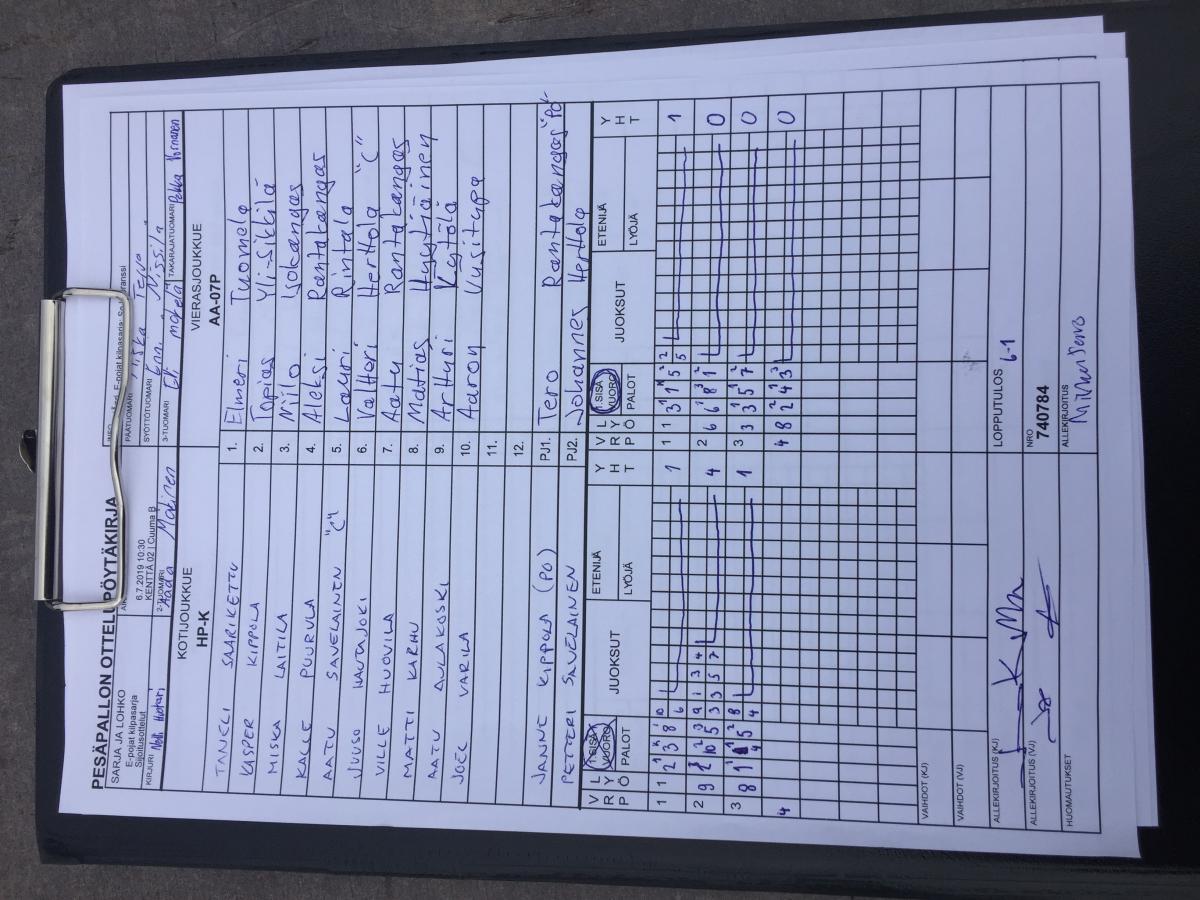 PESÄPALLON OTTELUPÖYTÄKIRJA
SARJA JA LOHKO
E-pojat kilpasarja
Sijoitusottelut
6.7.2019 10:30
KENTTÄ 02 | Cuuma B
PÄÄTUOMARI Miska
SYÖTTÖTUOMARI Nissilä
KIRJURI
2-TUOMARI Matinen
3-TUOMARI
TAKARAJATUOMARI Pekka
KOTIJOUKKUE
HP-K
VIERASJOUKKUE
AA-07P
TANELI SAARIKETTU 1. Elmeri Tuomela
KASPER KIPPOLA 2. Topias Yli-Sikkilä
MISKA LAITILA 3. Niilo Isokangas
KALLE PUURULA 4. Aleksi Rantakangas
AATU SAVELAINEN "C" 5. Lauri Rintala
JUUSO HAUTAJOKI 6. Valtteri Herttola "C"
VILLE HUOVILA 7. Aatu Rantakangas
MATTI KARHU 8. Matias Hyytiäinen
AATU AULAKOSKI 9. Artturi Kytölä
JOEL VARILA 10. Aaron Uusitupa
11.
12.
JANNE KIPPOLA (PO) PJ1. Tero Rantakangas "PO"
PETTERI SAVELAINEN PJ2. Johannes Herttola
V R P L Y Ö 1.SISÄ VUORO PALOT JUOKSUT ETENIJÄ LYÖJÄ Y H T V R P L Y Ö 1.SISÄ VUORO PALOT JUOKSUT ETENIJÄ LYÖJÄ Y H T
1 1 2 3 8 10 6 1 1 1 3 1 5 2 5 1
2 9 2 10 5 9 3 1 3 3 5 4 7 4 2 6 6 8 1 0
3 8 1 4 5 8 4 1 3 3 3 5 7 0
4 4 8 2 4 3 0
VAIHDOT (KJ)
VAIHDOT (VJ)
ALLEKIRJOITUS (KJ)
LOPPUTULOS 6-1
ALLEKIRJOITUS (VJ)
NRO
740784
HUOMAUTUKSET
ALLEKIRJOITUS